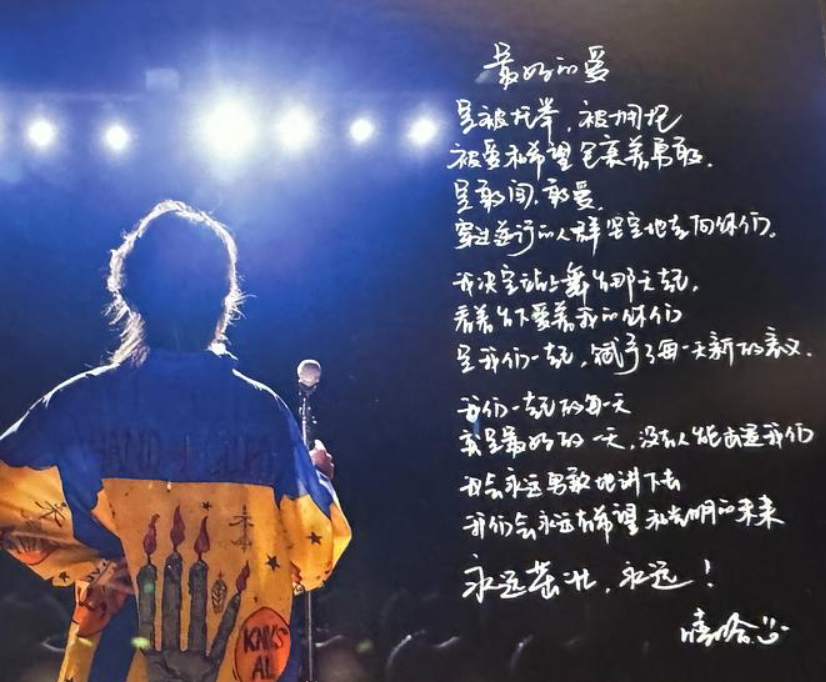 最好的爱
是被托举，被拥抱
被爱和希望包裹着勇敢．
是敢闯．敢爱．
穿过逆行的人群坚定地走向你们。
我决定站上舞台那天起，
看着台下爱着我的你们
是我们一起，赋予了每一天新的意义．
我们一起的每一天
都是最好的一天，没有人能击退我们
我会永远勇敢地讲下去
我们会永远有希望和光明的未来
永远茁壮，永远！
嘻哈
KNVS
AL